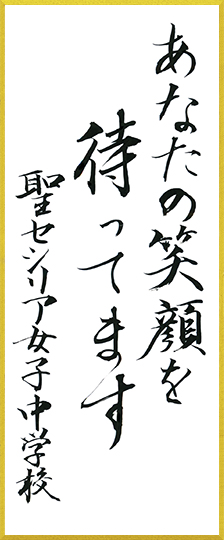 あなたの笑顔を
待ってます
聖セシリア女子中学校